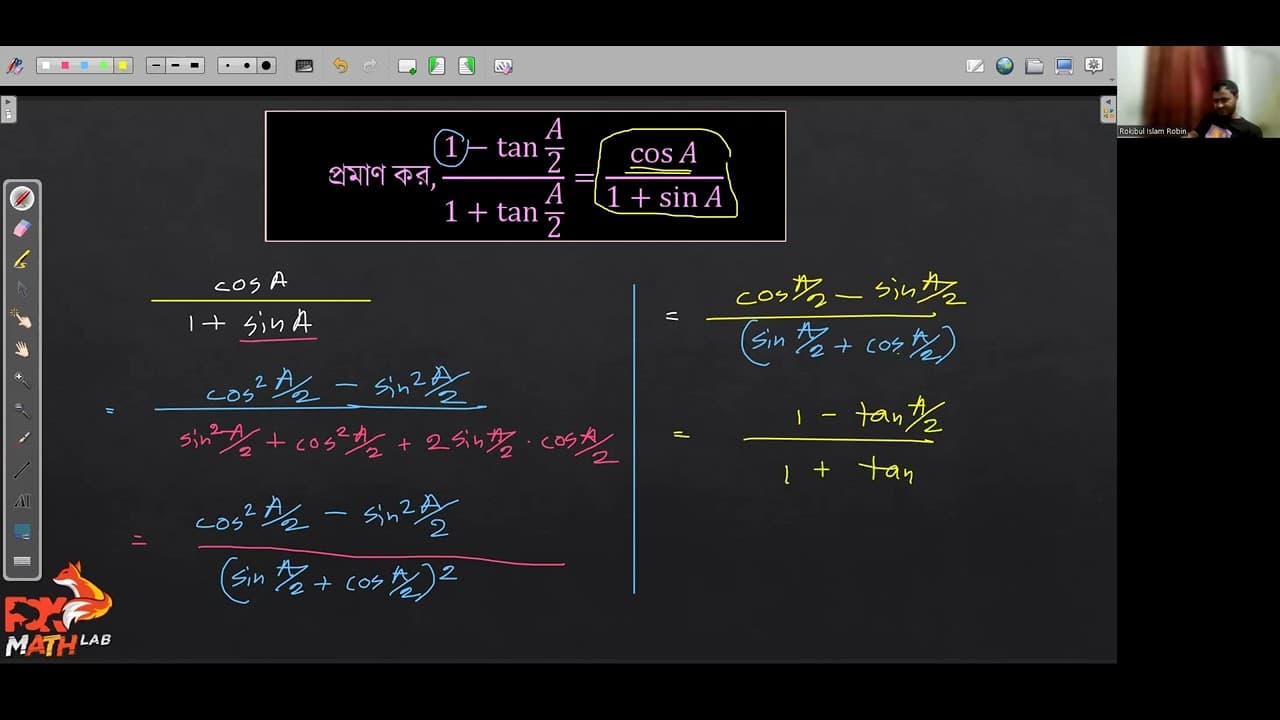 প্রমাণ কর, (1 − tan A/2)/(1 + tan A/2) = cos A/(1 + sin A)
cosA
1 + sinA
= cos²A/2 − sin²A/2
sin²A/2 + cos²A/2 + 2 sinA/2 · cosA/2
= cos²A/2 − sin²A/2
(sin A/2 + cos A/2)²
= cosA/2 − sinA/2
(sin A/2 + cosA/2)
= 1 − tanA/2
1 + tan
Rokibul Islam Robin
FOX
MATH LAB